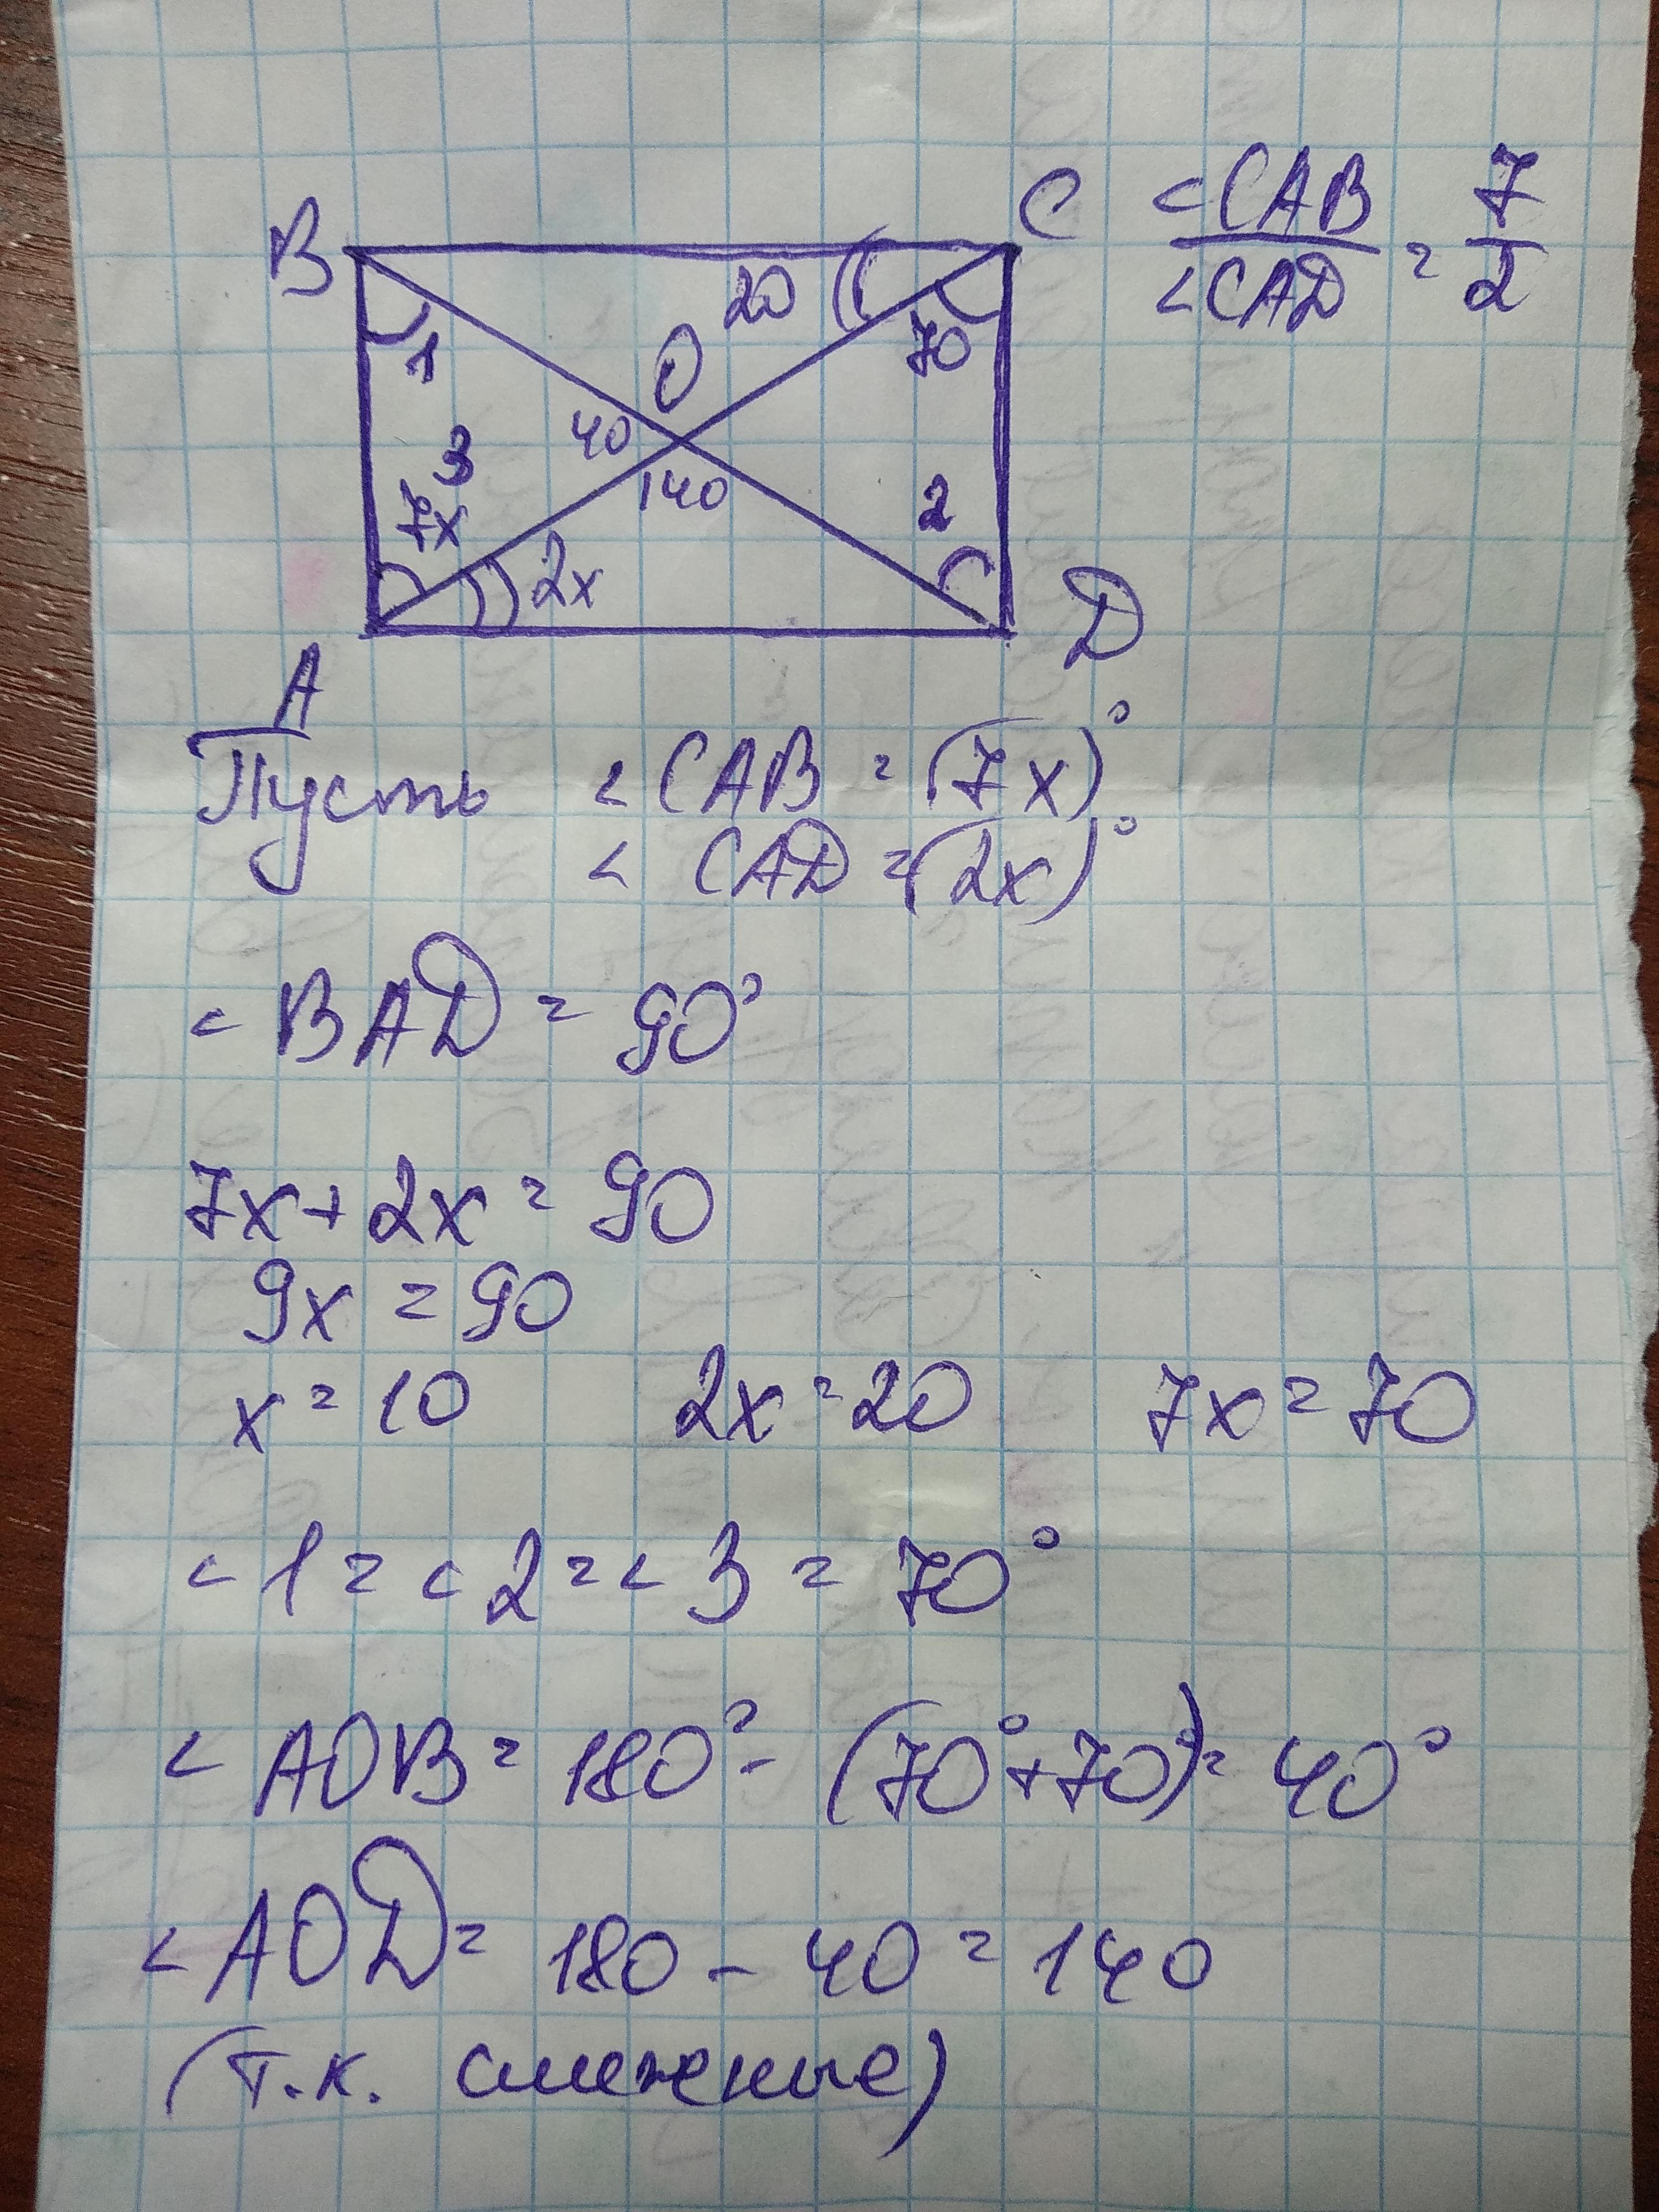 B
C
<CAB / <CAD = 7/2
20
O
70
1
40
3
140
2
7x
2x
D
A
Пусть <CAB = (7x)°
<CAD = (2x)°
<BAD = 90°
7x + 2x = 90
9x = 90
x = 10 2x = 20 7x = 70
<1 = <2 = <3 = 70°
<AOB = 180° - (70° + 70°) = 40°
<AOD = 180 - 40 = 140
(т.к. смежные)